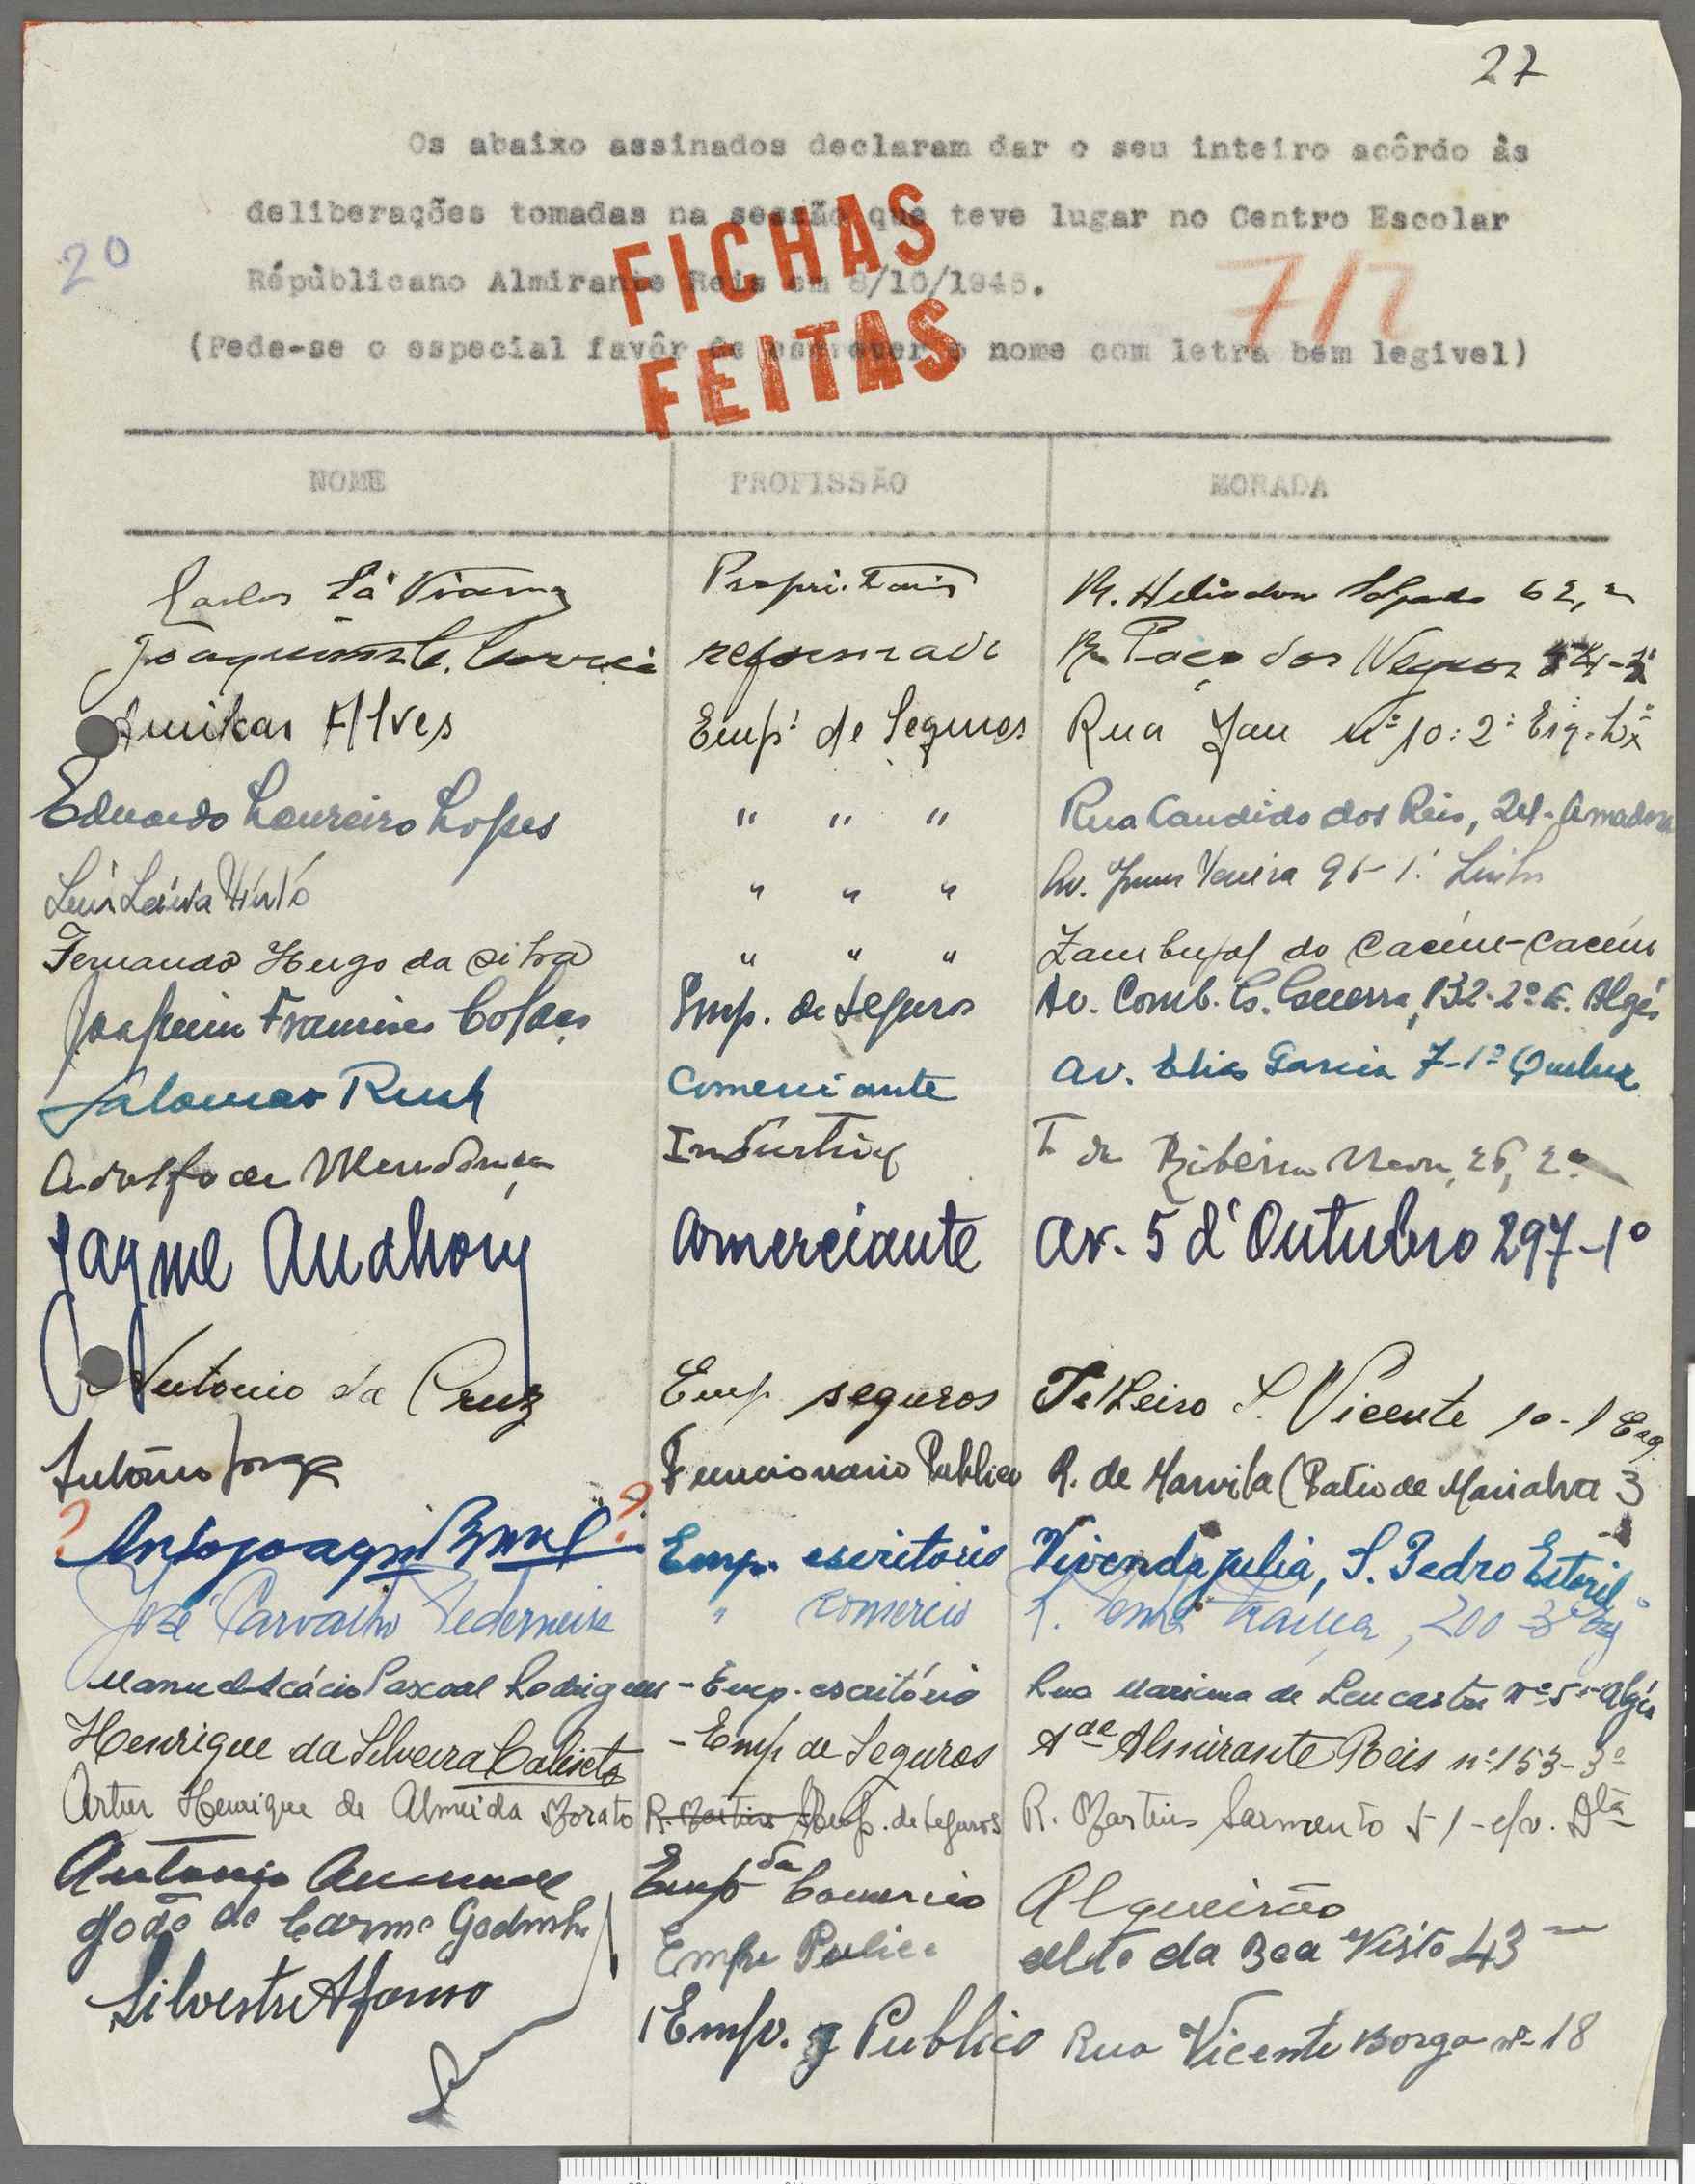 27
Os abaixo assinados declaram dar o seu inteiro acôrdo às
deliberações tomadas na sessão que teve lugar no Centro Escolar
2º
Républicano Almirante Reis em 8/10/1945.
(Pede-se o especial favôr de escrever o nome com letra bem legivel)
FICHAS
FEITAS
NOME PROFISSÃO MORADA
Carlos Sá Vianna Proprietario R. Heliodoro Salgado 62, 2º
Joaquim C. Correia reformado R. Poço dos Negros
Amilcar Alves Empº de Seguros Rua Jau Nº 10: 2º Esq. Lxª
Eduardo Loureiro Lopes " " " Rua Candido dos Reis, Amadora
Luis " " " Av. 1º Lisboa
Fernando Hugo da Silva " " " Zambujal do Cacém-Cacém
Joaquim Francisco Emp. de Seguros Av. Comb. G. Guerra, 132-2º E. Algés
Salomão Rush Comerciante Av. Elias Garcia 7-1º Queluz
Adolfo de Mendonça Industrial T. da Ribeira Nova, 26, 2º
Jayme Anahory Comerciante Av. 5 d'Outubro 297-1º
Antonio da Cruz Emp. seguros Telheiro S. Vicente 10-1 Esq.
António Jorge Funcionario Publico R. de Marvila (Patio de Marialva 3
? Joaquim ? Emp. escritorio Vivenda Julia, S. Pedro Estoril
José Carvalho Pederneira " comercio 200-3º Esq
Manuel Acácio Pascoal Rodrigues - Emp. escritório Rua Mariana de Lencastre nº 5 - Algés
Henrique da Silveira - Emp. de Seguros Aᵈᵃ Almirante Reis nº 153-3º
Artur Henrique de Almeida Morato R. Martins Emp. de Seguros R. Martins Sarmento 51-c/v. Dtª
Antonio Emp. da Comercio Algueirão
João do Carmo Godinho Empº Publico Alto da Boa Visto 43
Silvestre Afonso Emp. Publico Rua Vicente Borga nº 18